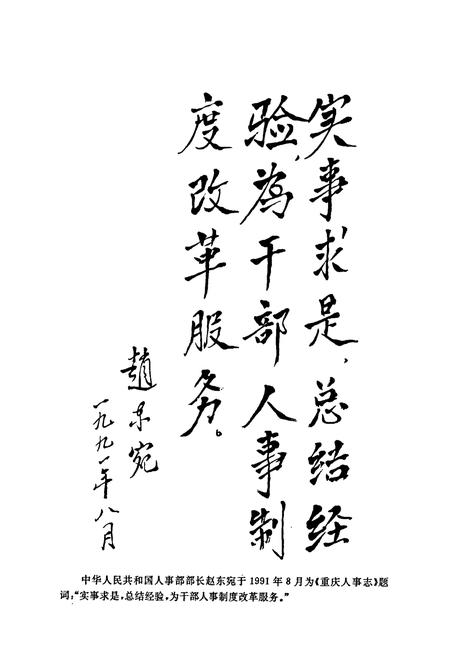 实事求是，总结经
验，為干部人事制
度改革服务。
趙东宛
一九九一年八月
中华人民共和国人事部部长赵东宛于1991年8月为《重庆人事志》题
词：“实事求是，总结经验，为干部人事制度改革服务。”